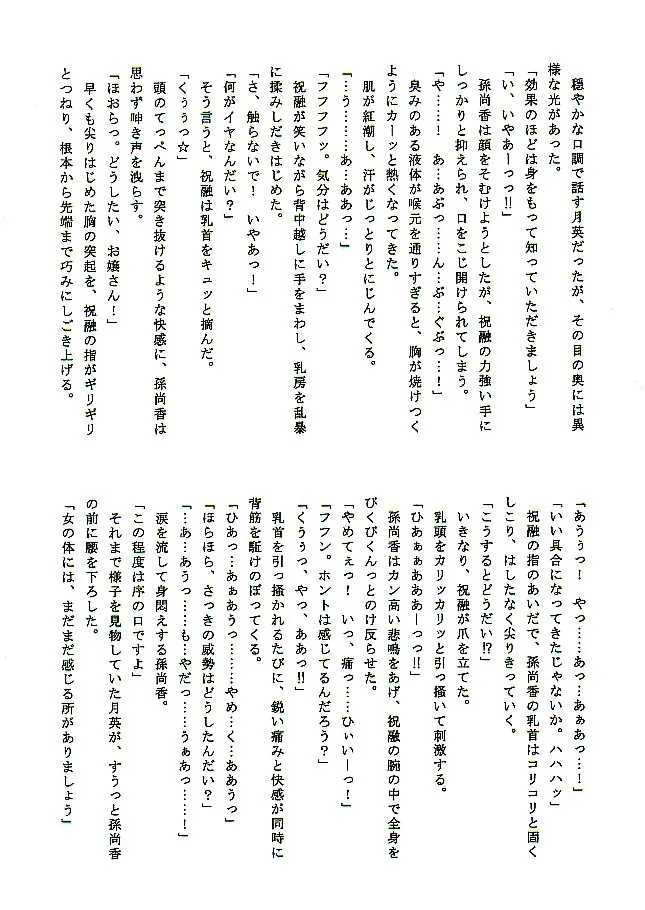 穏やかな口調で話す月英だったが、その目の奥には異
様な光があった。
「効果のほどは身をもって知っていただきましょう」
「い、いやあーっっ!!」
孫尚香は顔をそむけようとしたが、祝融の力強い手に
しっかりと抑えられ、口をこじ開けられてしまう。
「や……！　あ…あぷっ……ん…ぶ…ぐぷっ…！」
臭みのある液体が喉元を通りすぎると、胸が焼けつく
ようにカーッと熱くなってきた。
肌が紅潮し、汗がじっとりとにじんでくる。
「…う………あ…ああっ…」
「フフフフッ。気分はどうだい？」
祝融が笑いながら背中越しに手をまわし、乳房を乱暴
に揉みしだきはじめた。
「さ、触らないで！　いやあっ！」
「何がイヤなんだい？」
そう言うと、祝融は乳首をキュッと摘んだ。
「くぅぅっ☆」
頭のてっぺんまで突き抜けるような快感に、孫尚香は
思わず呻き声を洩らす。
「ほおらっ。どうしたい、お嬢さん！」
早くも尖りはじめた胸の突起を、祝融の指がギリギリ
とつねり、根本から先端まで巧みにしごき上げる。
「あうぅっ！　やっ……あっ…あぁあっ…！」
「いい具合になってきたじゃないか。ハハハッ」
祝融の指のあいだで、孫尚香の乳首はコリコリと固く
しこり、はしたなく尖りきっていく。
「こうするとどうだい!?」
いきなり、祝融が爪を立てた。
乳頭をカリッカリッと引っ掻いて刺激する。
「ひあぁぁあああーっっ!!」
孫尚香はカン高い悲鳴をあげ、祝融の腕の中で全身を
びくびくんっとのけ反らせた。
「やめてぇっ！　いっ、痛っ……ひぃいーっ！」
「フフン。ホントは感じてるんだろう？」
「くぅぅっ、やっ、ああっ!!」
乳首を引っ掻かれるたびに、鋭い痛みと快感が同時に
背筋を駈けのぼってくる。
「ひあっ…あぁあうっ………やめ…く…ああうっ」
「ほらほら、さっきの威勢はどうしたんだい？」
「…あ…あうっ……も…やだっ……うぁあっ……！」
涙を流して身悶えする孫尚香。
「この程度は序の口ですよ」
それまで様子を見物していた月英が、すうっと孫尚香
の前に腰を下ろした。
「女の体には、まだまだ感じる所がありましょう」